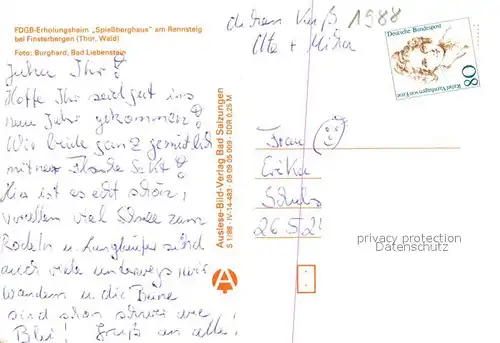 FDGB-Erholungsheim „Spießberghaus" am Rennsteig
bei Finsterbergen (Thür. Wald)
Foto: Burghard, Bad Liebenstein
Ihr!
Hoffe Ihr seid gut ins
neue Jahr gekommen?
Wir beide ganz gemütlich
mit Sekt!
Hier ist es echt schön,
viel Schnee zum
Rodeln u. Langläufer sind
auch viele unterwegs, wir
wandern u. die Beine
sind schon schwer wie
Blei! Gruß an alle!
Auslese-Bild-Verlag Bad Salzungen
S 1/88 · IV-14-483 · 09 09 05 009 · DDR 0,25 M
A
1988
+
Deutsche Bundespost
80
Rahel Varnhagen von Ense
Frau
Erika
privacy protection
Datenschutz